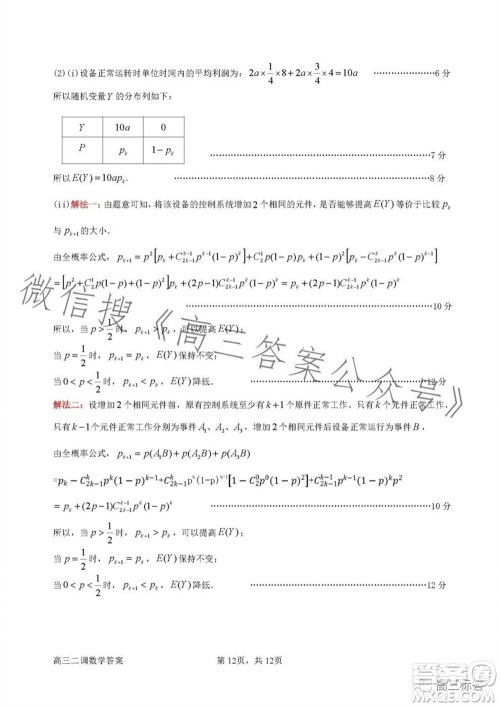 (2)(i)设备正常运转时单位时间内的平均利润为：2a×1/4×8+2a×3/4×4=10a ……………………6 分
所以随机变量 Y 的分布列如下：
Y 10a 0
P p_k 1-p_k
……………………7 分
所以 E(Y)=10ap_k. ……………………8 分
(ii)解法一：由题意可知，将该设备的控制系统增加 2 个相同的元件，是否能够提高 E(Y) 等价于比较 p_k
与 p_{k+1} 的大小.
由全概率公式， p_{k+1}=p^2[p_k+C_{2k-1}^{k-1}p^{k-1}(1-p)^k]+C_2^1p(1-p)p_k+(1-p)^2[p_k-C_{2k-1}^k p^k(1-p)^{k-1}]
=[p^2+C_2^1p(1-p)+(1-p)^2]p_k+(2p-1)C_{2k-1}^{k-1}p^k(1-p)^k=p_k+(2p-1)C_{2k-1}^{k-1}p^k(1-p)^k
……………………10 分
所以，当 p>1/2 时， p_{k+1}>p_k ，可以提高 E(Y)；
当 p=1/2 时， p_{k+1}=p_k ， E(Y) 保持不变；
当 0<p<1/2 时， p_{k+1}<p_k ， E(Y) 降低. ……………………12 分
解法二：设增加 2 个相同元件前，原有控制系统至少有 k+1 个原件正常工作、只有 k 个元件正常工作、
只有 k-1 个元件正常工作分别为事件 A_1、A_2、A_3，增加 2 个元件后设备正常运行为事件 B，
由全概率公式， p_{k+1}=p(A_1B)+p(A_2B)+p(A_3B)
=p_k-C_{2k-1}^k p^k(1-p)^{k-1}+C_{2k-1}^k p^k(1-p)^{k-1}[1-C_2^0p^0(1-p)^2]+C_{2k-1}^{k-1}p^{k-1}(1-p)^k p^2
=p_k+(2p-1)C_{2k-1}^{k-1}p^k(1-p)^k ……………………10 分
所以，当 p>1/2 时， p_{k+1}>p_k ，可以提高 E(Y)；
当 p=1/2 时， p_{k+1}=p_k ， E(Y) 保持不变；
当 0<p<1/2 时， p_{k+1}<p_k ， E(Y) 降低. ……………………12 分
微信搜《高三答案公众号》
高三二调数学答案 第 12页，共 12页
高三标答